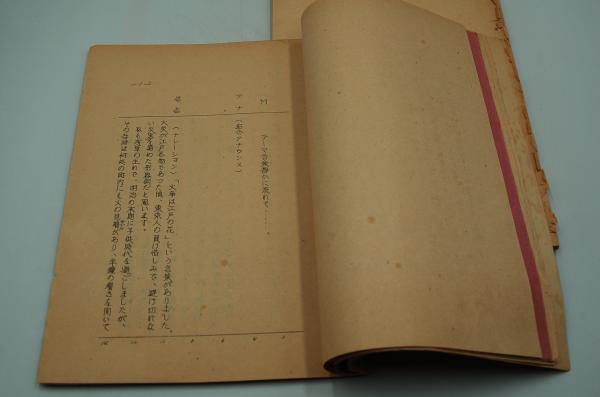 M　テーマ音楽静かに流れて……。
アナ（配役アナウンス）
（ナレーション）「火事は江戸の花」という言葉がありました。
火災が江戸名物であった頃、東京人の負け惜しみで、避け切れな
い災害を諦めた形容詞だと思います。
私も浅草の生れで、明治の末期に子供時代を過ごしましたが、
その当時は何処の町内にも火の見櫓があり、半鐘の響きを聞いて
—1—